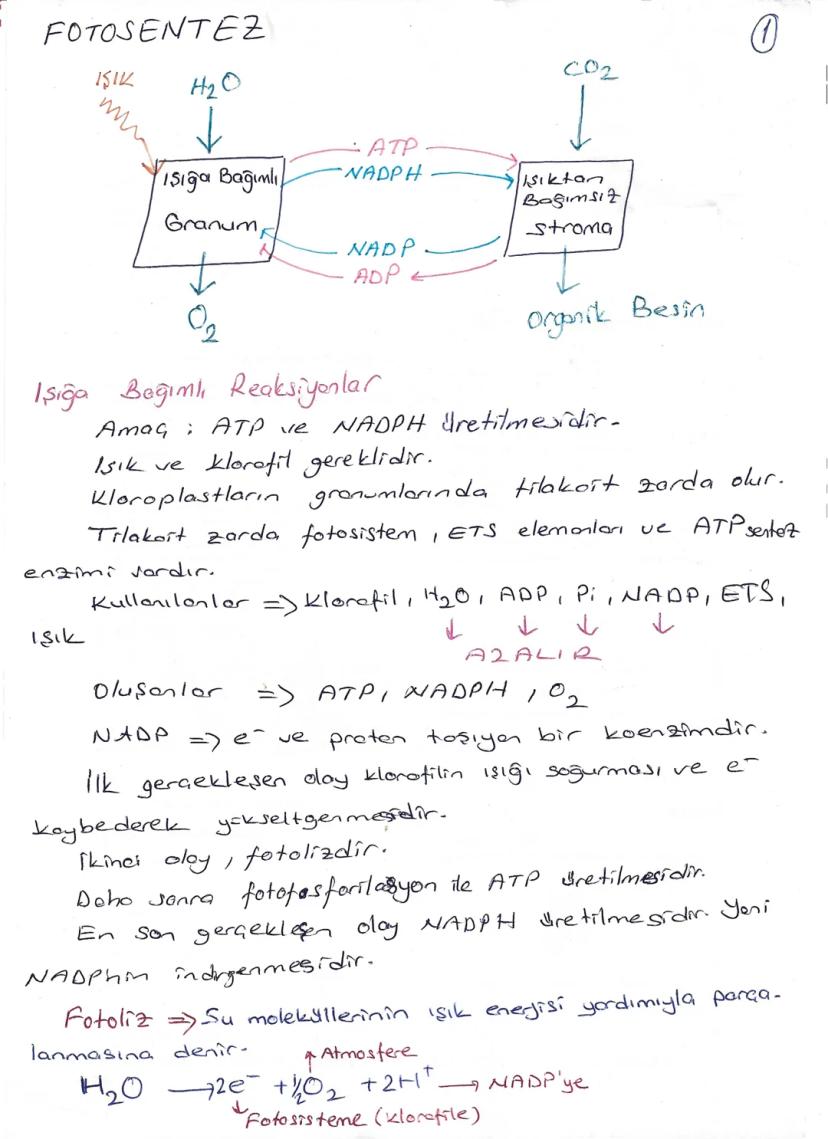 FOTOSENTEZ
1
IŞIK
H2O
CO2
ATP
NADPH
Işığa Bağımlı
Granum
Işıktan
Bağımsız
stroma
NADP
ADP
O2
Organik Besin
Işığa Bağımlı Reaksiyonlar
Amaç : ATP ve NADPH üretilmesidir.
Işık ve klorofil gereklidir.
Kloroplastların granumlarında tilakoit zarda olur.
Tilakoit zarda fotosistem, ETS elemanları ve ATP sentez
enzimi vardır.
Kullanılanlar => klorofil, H2O, ADP, Pi, NADP, ETS,
ışık
↓ ↓ ↓ ↓
AZALIR
Oluşanlar => ATP, NADPH, O2
NADP => e- ve proton taşıyan bir koenzimdir.
İlk gerçekleşen olay klorofilin ışığı soğurması ve e-
kaybederek yükseltgenmesidir.
İkinci olay, fotolizdir.
Daha sonra fotofosforilasyon ile ATP üretilmesidir.
En son gerçekleşen olay NADPH üretilmesidir. Yani
NADPhın indirgenmesidir.
Fotoliz => Su moleküllerinin ışık enerjisi yardımıyla parça-
lanmasına denir.
↑ Atmosfere
H2O → 2e- + 1/2 O2 + 2H+ → NADP'ye
↓ Fotosisteme (klorofile)